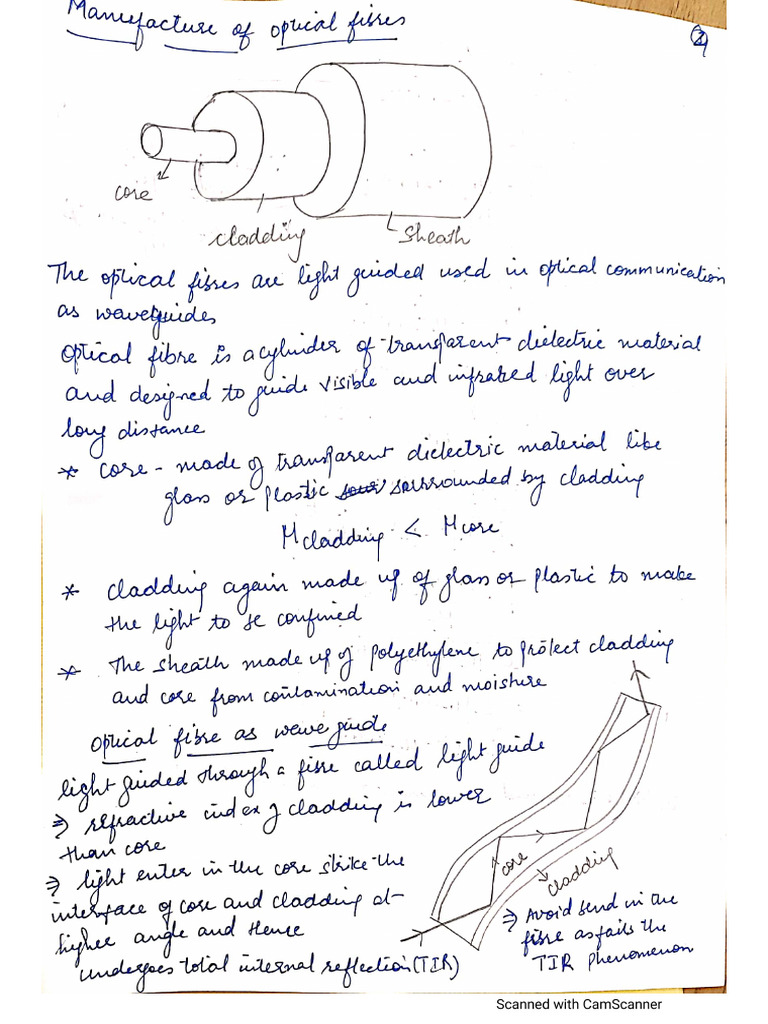 Manufacture of optical fibres
2
core
cladding
Sheath
The optical fibres are light guided used in optical communication
as waveguides
Optical fibre is a cylinder of transparent dielectric material
and designed to guide visible and infrared light over
long distance
* core - made of transparent dielectric material like
glass or plastic surrounded by cladding
μcladding < μcore
* cladding again made up of glass or plastic to make
the light to be confined
* The sheath made up of polyethylene to protect cladding
and core from contamination and moisture
optical fibre as wave guide
light guided through a fibre called light guide
⇒ refractive index of cladding is lower
than core
⇒ light enter in the core strike the
interface of core and cladding at
higher angle and Hence
undergoes total internal reflection (TIR)
core
cladding
⇒ Avoid bend in the
fibre as fails the
TIR phenomenon
Scanned with CamScanner